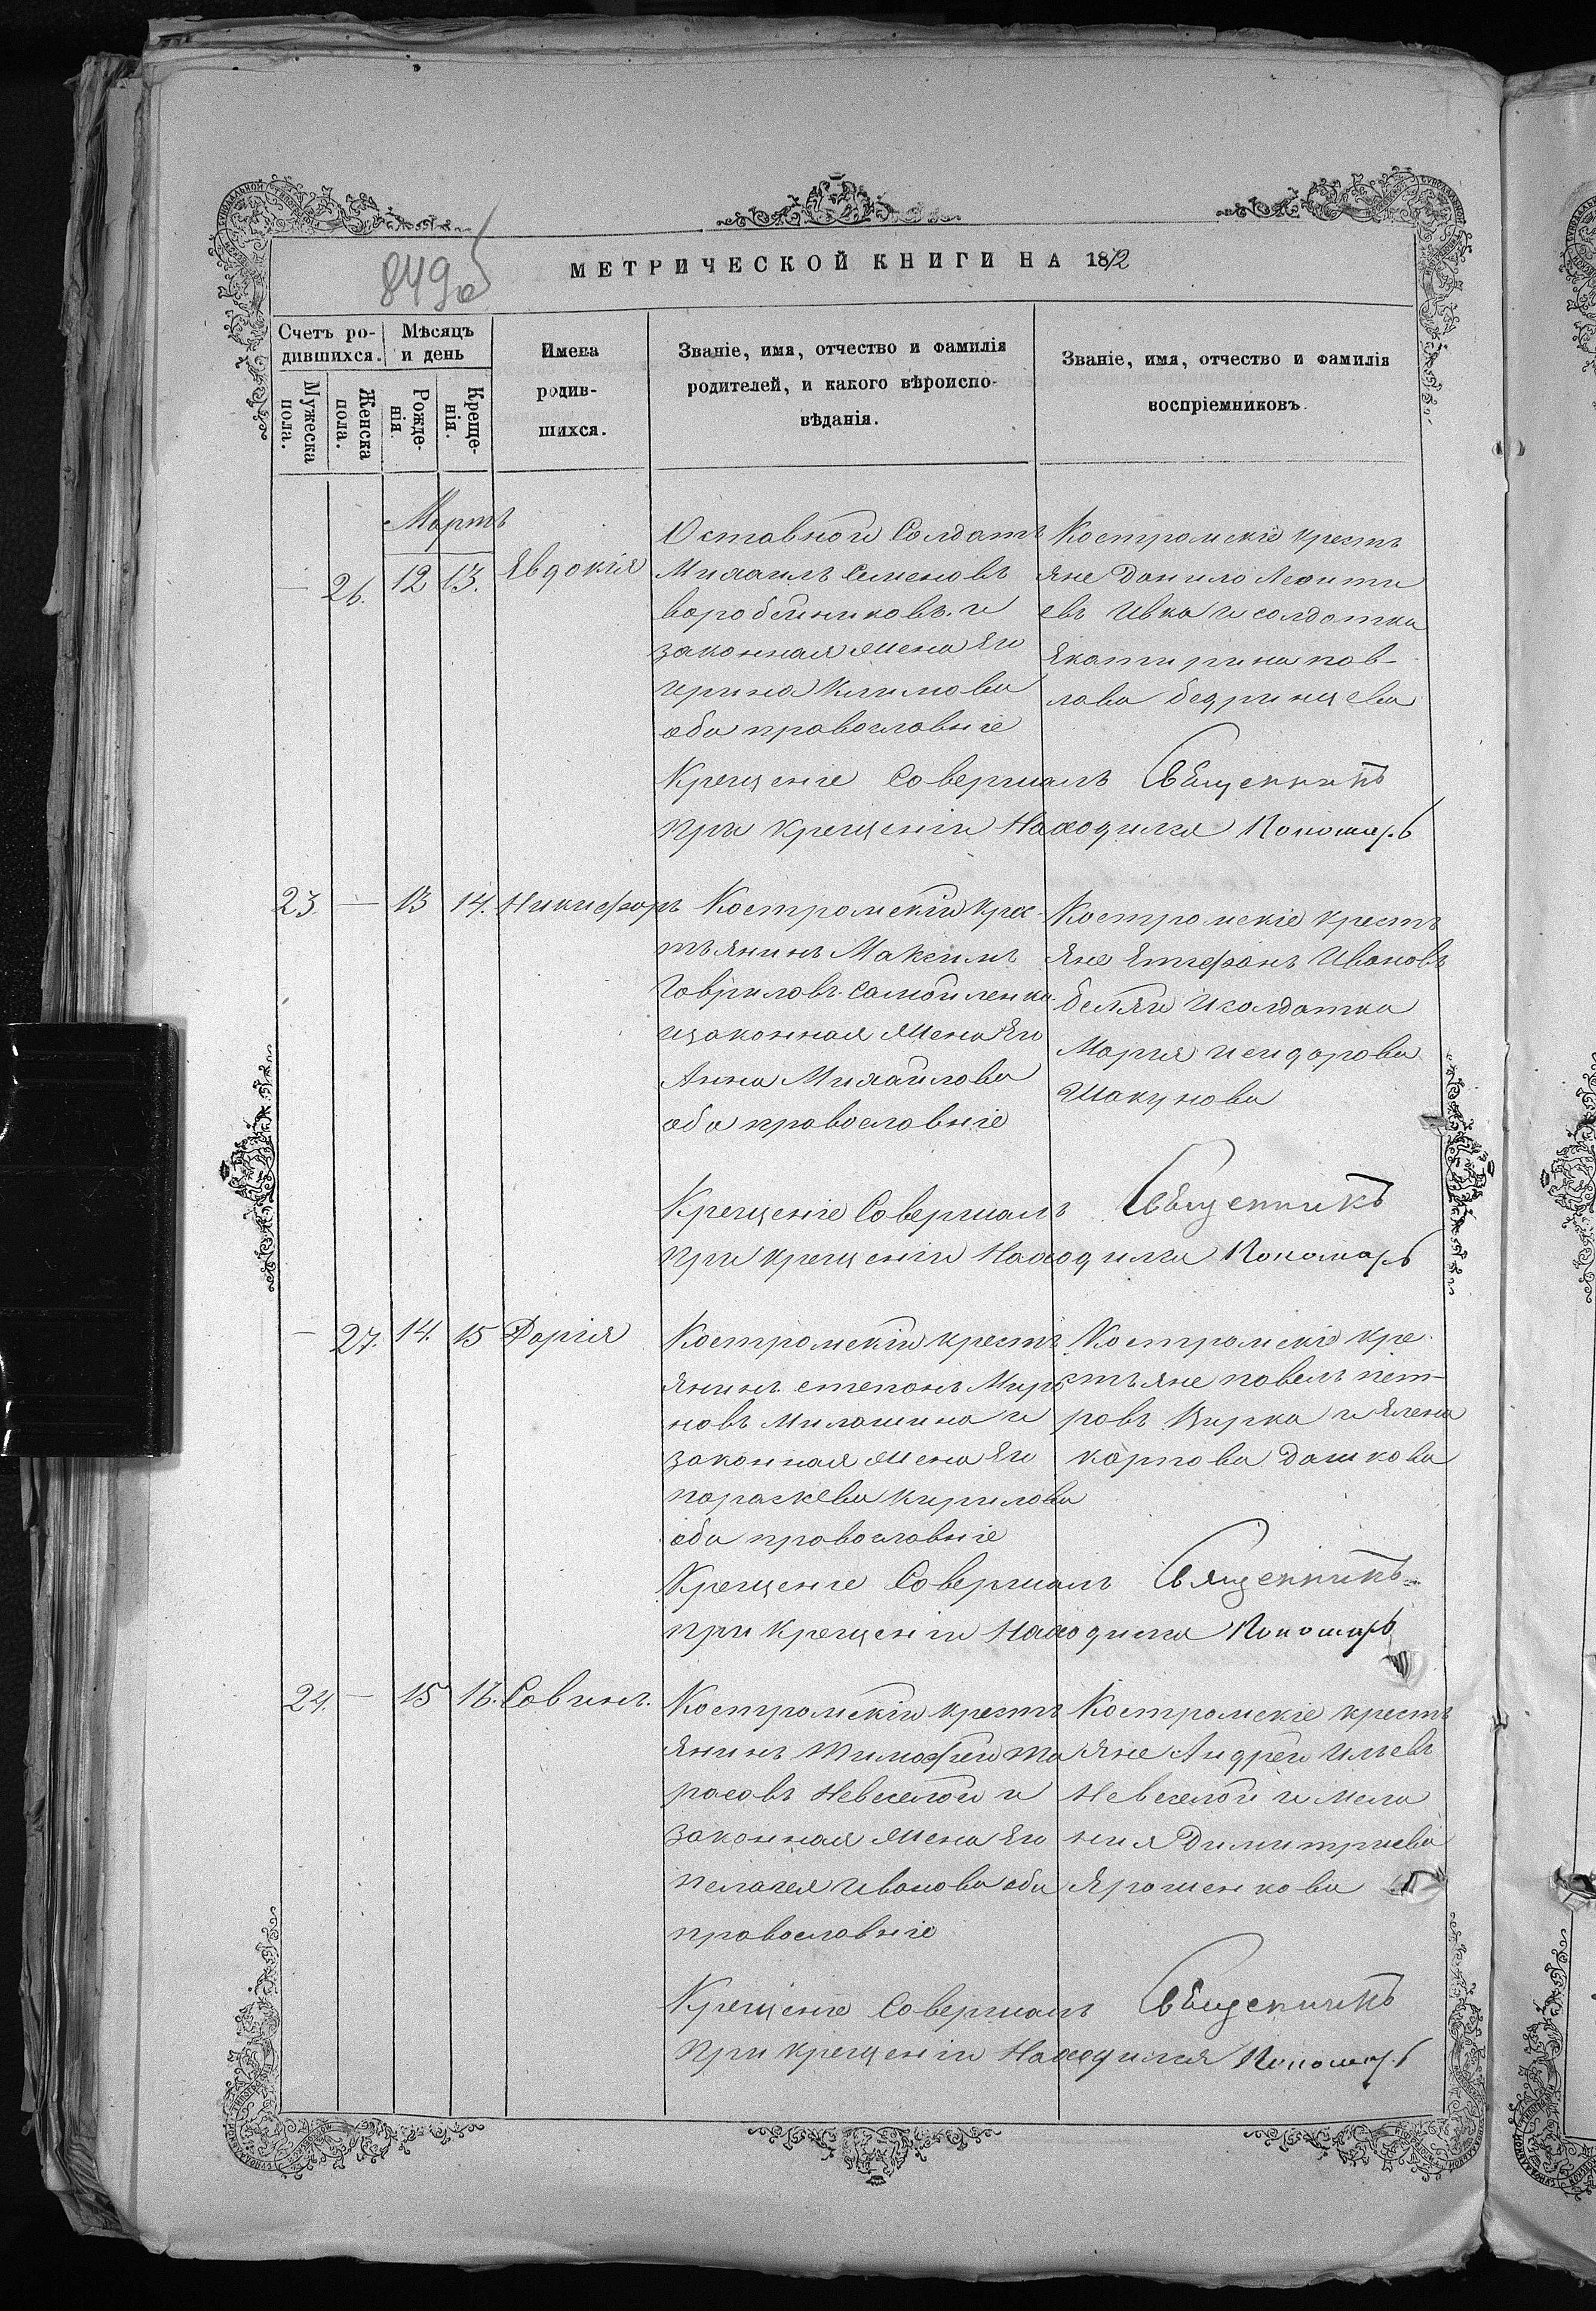 849об
МЕТРИЧЕСКОЙ КНИГИ НА 1872
Счетъ ро-
дившихся.
Мѣсяцъ
и день
Мужеска
пола.
Женска
пола.
Рожде-
нія.
Креще-
нія.
Имена
родив-
шихся.
Званіе, имя, отчество и фамилія
родителей, и какого вѣроиспо-
вѣданія.
Званіе, имя, отчество и фамилія
воспріемниковъ.
Мартъ
— 26. 12 13. Явдокія
Оставной Солдатъ
Михаилъ Семеновъ
воробейниковъ. и
законная жена Яго
ирина Климова
оба православніе
Костромскіе кресть
яне Данило Леонти
евъ Ивка и солдатка
Якатирина пав-
лова бедринцева
Крещеніе Совершалъ Священникъ
При крещеніи Находился Пономарь
23. — 13 14. Никифоръ
Костромскій крес-
тьянинъ Максимъ
Гавриловъ Самойленко
изаконная жена Яго
Анна Михайлова
оба православніе
Костромскіе кресть
яне Ятифанъ Ивановъ
беляй и солдатка
Марія исидорова
Шакунова
Крещеніе Совершалъ Священникъ
При крещеніи Находился Пономарь
— 27. 14. 15 Дарія
Костромскій кресть
янинъ степанъ Миро
новъ Милашина и
законная жена Яго
параскева кирилова
оба православніе
Костромскіе кре
стьяне павелъ пет-
ровъ Кирка и Ялена
карпова Дашкова
Крещеніе Совершалъ Священникъ
при Крещеніи Находился Пономарь
24. — 15 16. Савинъ.
Костромскій кресть
янинъ Тимофей та
расовъ Невеселой и
законная жена Яго
пелагея иванова оба
православніе
Костромскіе кресть
яне Андрей Ильевъ
Невеселой и мела
нія Димитриева
Ярошенкова
Крещеніе Совершалъ Священникъ
При крещеніи Находился Пономарь